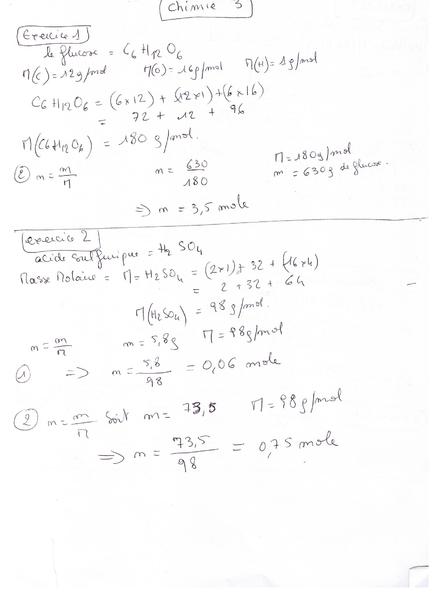 Chimie 3
Exercice 1
le glucose = C6 H12 O6
M(C) = 12g/mol M(O) = 16g/mol M(H) = 1g/mol
C6 H12 O6 = (6x12) + (12x1) + (6x16)
= 72 + 12 + 96
M(C6H12O6) = 180 g/mol.
② n = m/M n = 630/180 M = 180g/mol
m = 630g de glucose.
=> n = 3,5 mole
exercice 2
acide sulfurique = H2 SO4
Masse Molaire = M = H2SO4 = (2x1) + 32 + (16x4)
= 2 + 32 + 64
M(H2SO4) = 98 g/mol.
n = m/M m = 5,8g M = 98g/mol
① => n = 5,8/98 = 0,06 mole
② n = m/M soit m = 73,5 M = 98g/mol
=> n = 73,5/98 = 0,75 mole